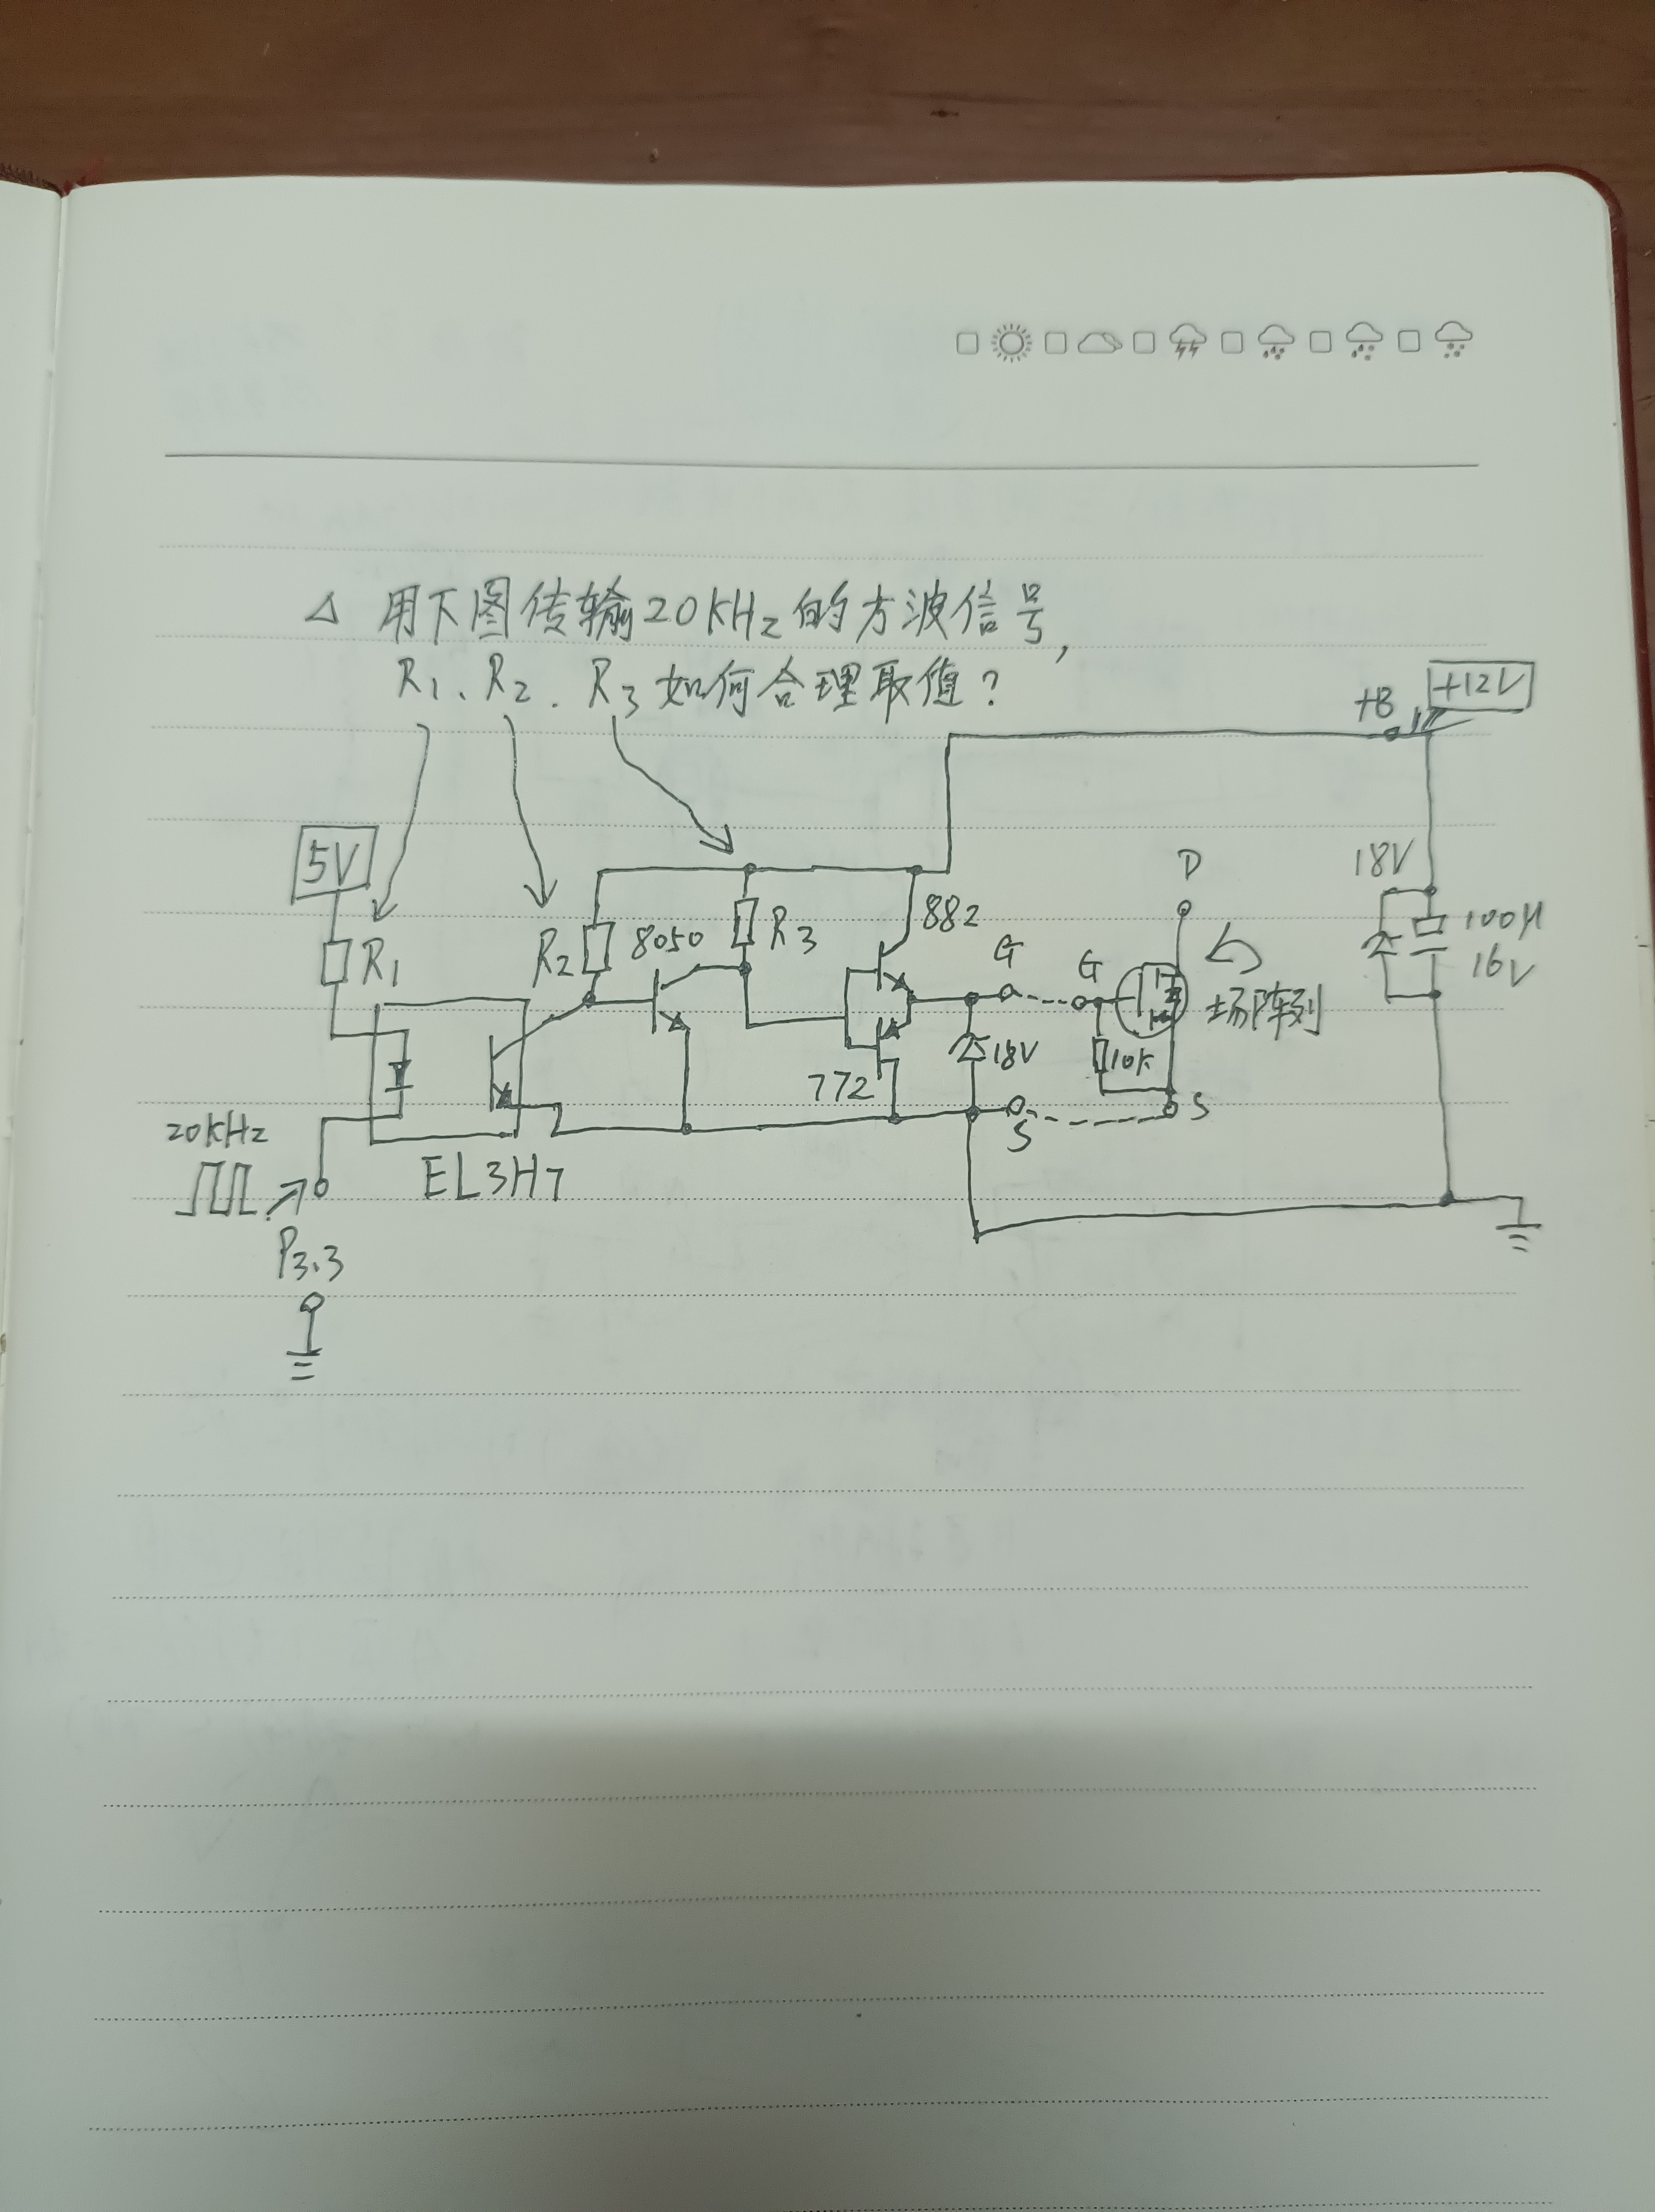 △ 用下图传输20KHz的方波信号,
R1、R2、R3如何合理取值?
+B
+12V
5V
R1
R2
8050
R3
882
G
G
D
场阵列
18V
100μ
16V
772
18V
10K
S
S
20KHz
EL3H7
P3.3